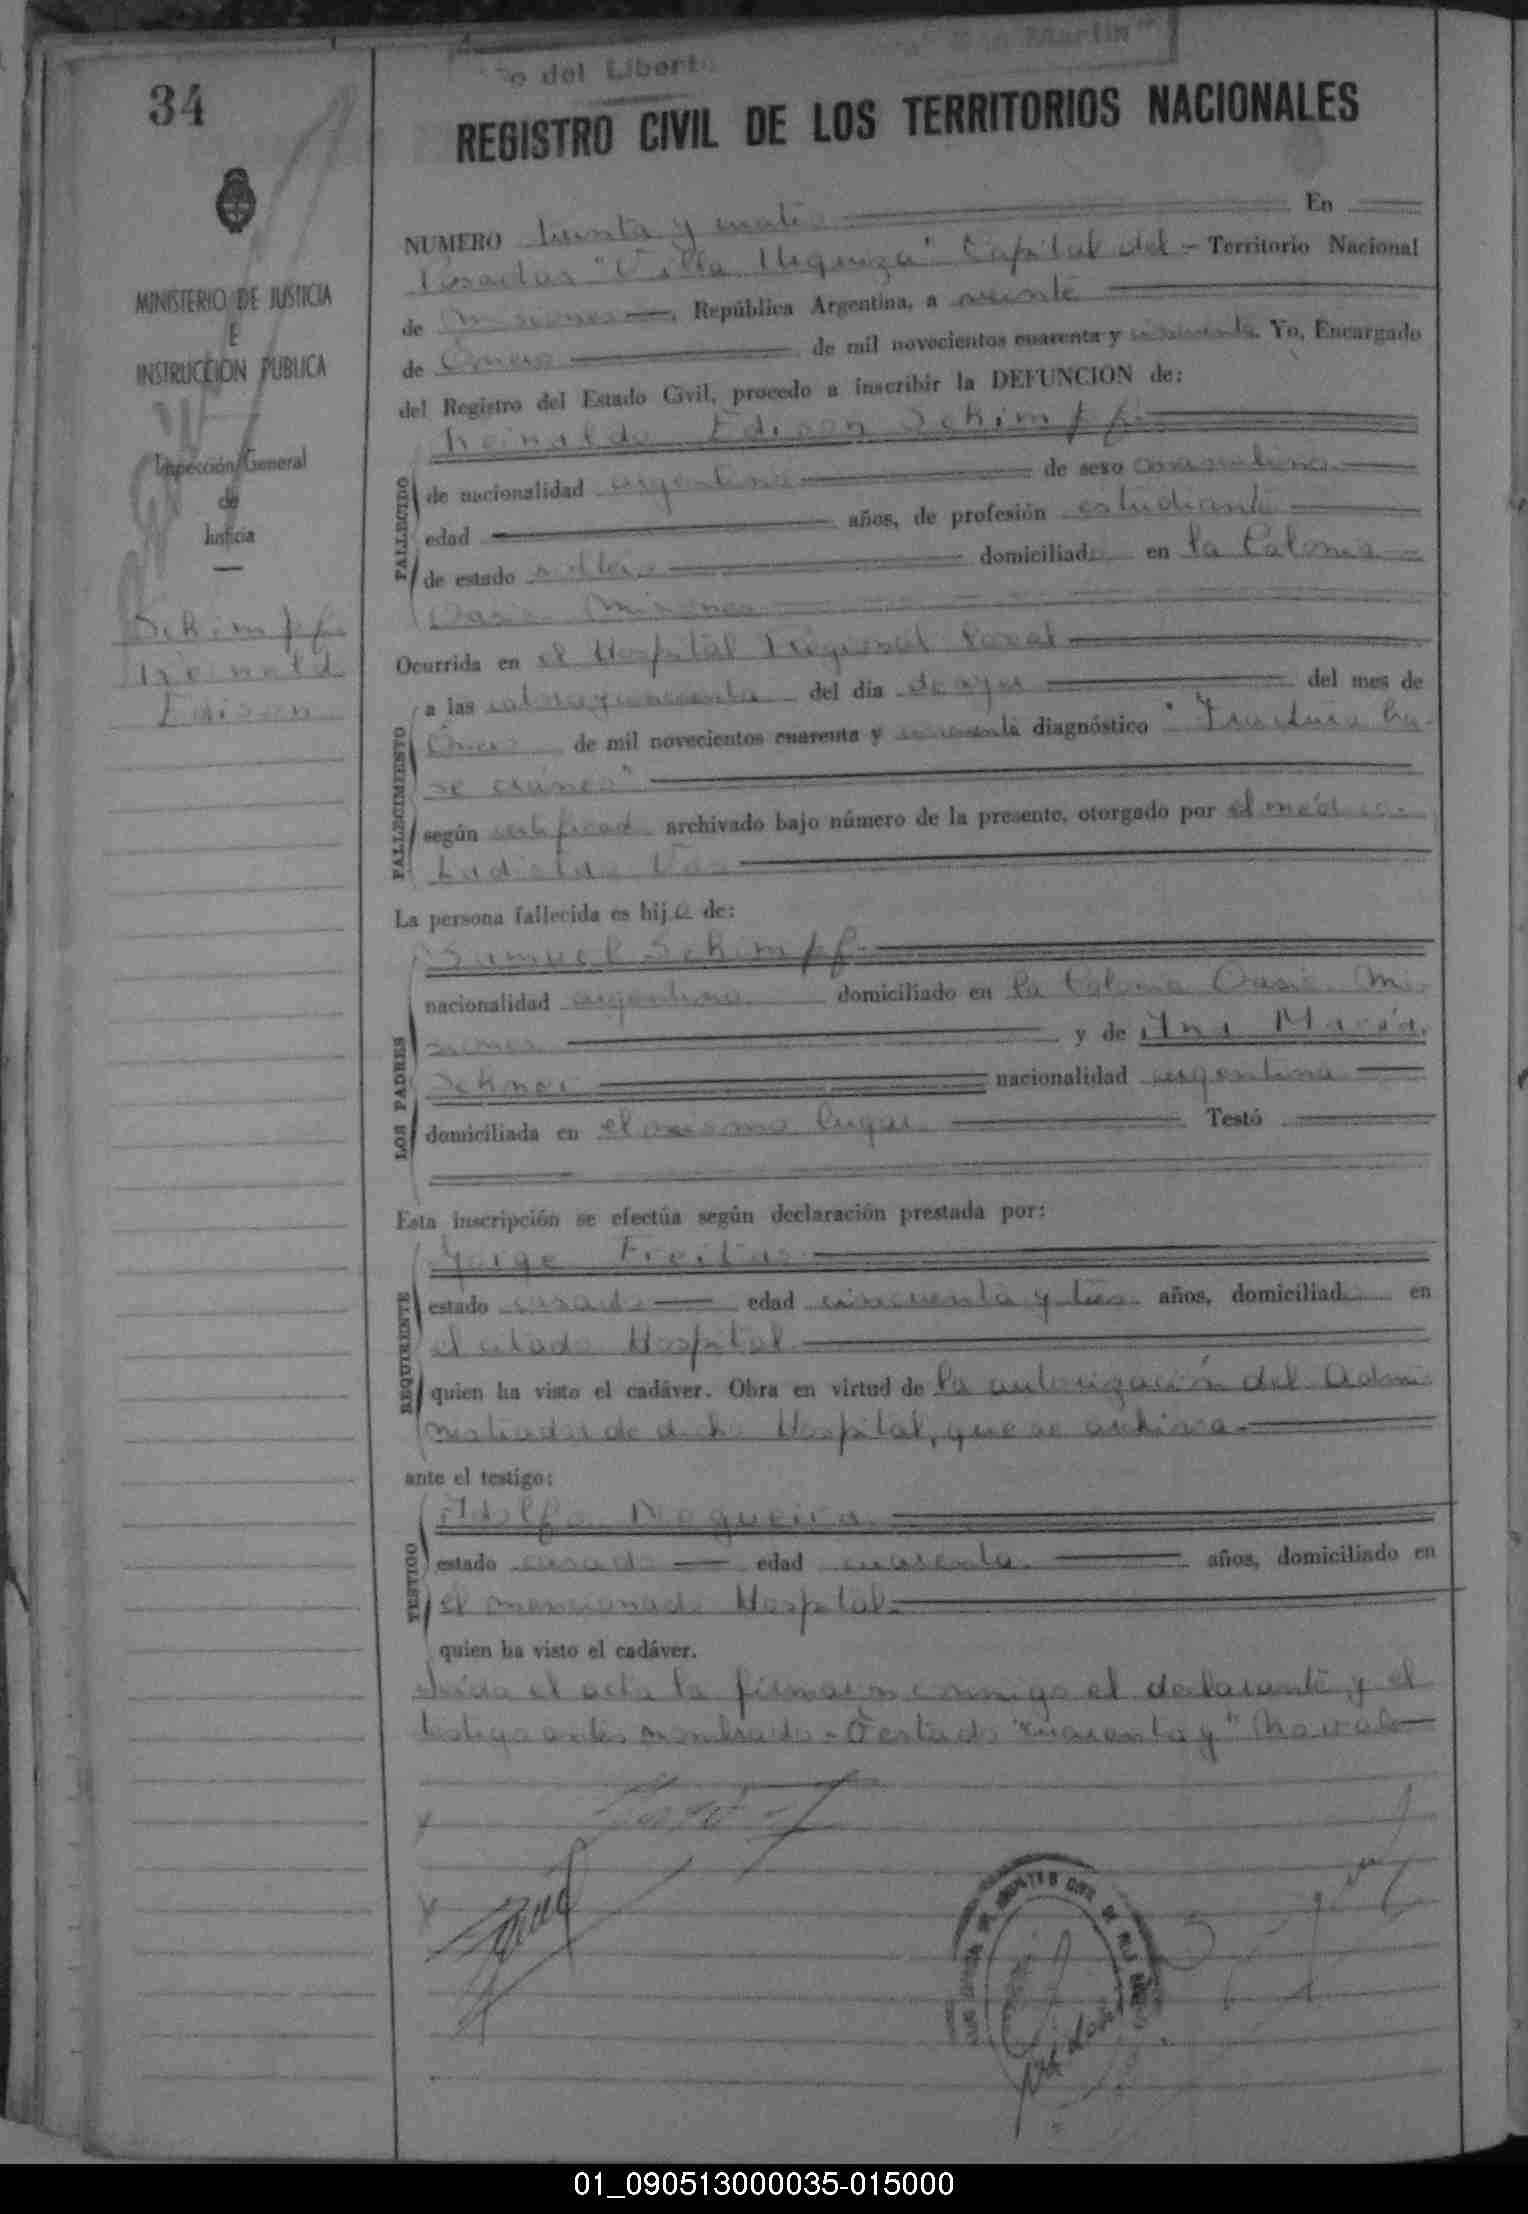 34
o del Libert
San Martín"
REGISTRO CIVIL DE LOS TERRITORIOS NACIONALES
MINISTERIO DE JUSTICIA
E
INSTRUCCIÓN PÚBLICA
Inspección General
de
Justicia
Schimpf
Reinaldo
Edison
NUMERO treinta y cuatro En
Posadas "Villa Urquiza" Capital del - Territorio Nacional
de Misiones, República Argentina, a veinte
de Enero de mil novecientos cuarenta y cincuenta Yo, Encargado
del Registro del Estado Civil, procedo a inscribir la DEFUNCION de:
Reinaldo Edison Schimpf
FALLECIDO
de nacionalidad argentina de sexo masculino
edad años, de profesión estudiante
de estado soltero domiciliado en la Colonia
Oasis Misiones
Ocurrida en el Hospital Regional local
FALLECIMIENTO
a las del día de ayer del mes de
Enero de mil novecientos cuarenta y cincuenta diagnóstico "Fractura ba-
se cráneo"
según certificado archivado bajo número de la presente, otorgado por el médico
Ladislao
La persona fallecida es hijo de:
LOS PADRES
Samuel Schimpf
nacionalidad argentina domiciliado en la Colonia Oasis Mi-
siones y de Ana María
nacionalidad argentina
domiciliada en el mismo lugar Testó
Esta inscripción se efectúa según declaración prestada por:
REQUIRENTE
Jorge Freitas
estado casado edad cincuenta y tres años, domiciliado en
el citado Hospital
quien ha visto el cadáver. Obra en virtud de la autorización del Admi-
nistrador de dicho Hospital, que se archiva.
ante el testigo:
TESTIGO
Adolfo Nogueira
estado casado edad cuarenta años, domiciliado en
el mencionado Hospital.
quien ha visto el cadáver.
Leída el acta la firmaron conmigo el declarante y el
testigo antes nombrado - Testado "cuarenta y" No vale
01_090513000035-015000